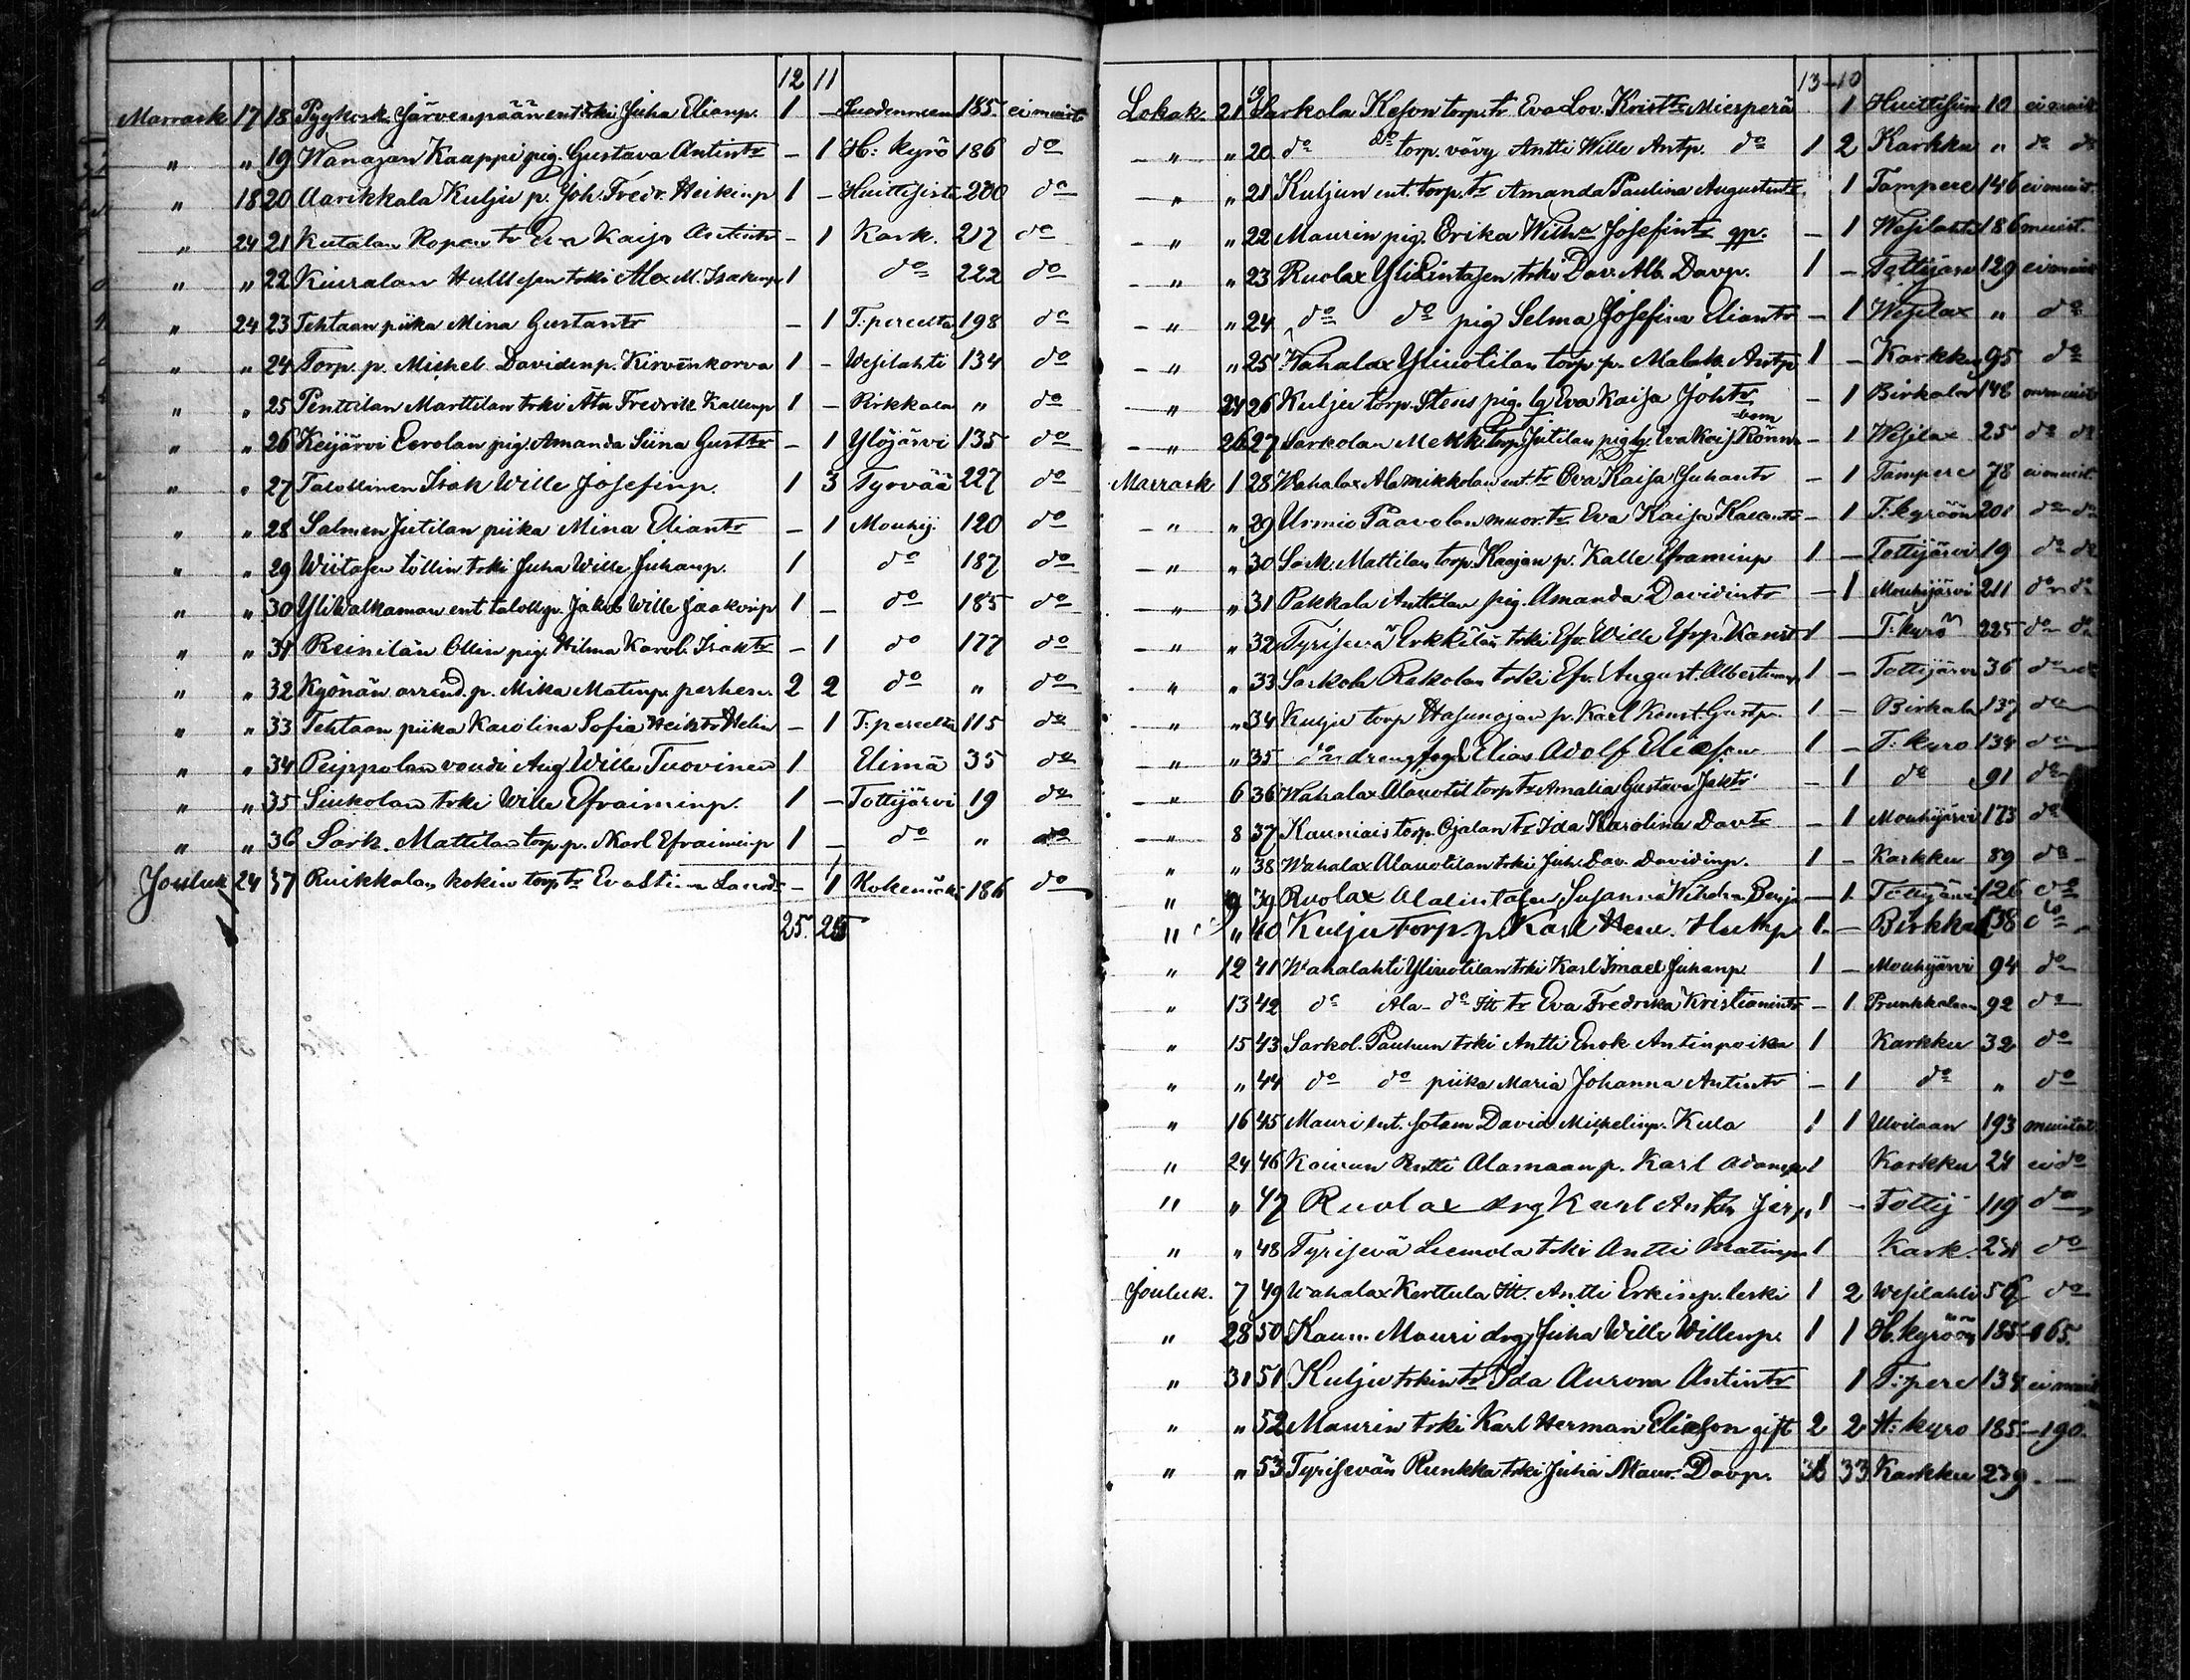 12 11
Marrask 17 18 Pyykosk Järvenpään ent. trki Juha Elianp. 1 – Suodennieme 185 ei muist
" " 19 Wanajan Kaappi pig. Gustava Antintr – 1 H: kyrö 186 do
" 18 20 Aarikkala Kulju p. Joh. Fredr. Heikinp 1 – Huittisista 200 do
" 24 21 Kutalan Ropan tr Eva Kaisa Antintr – 1 Kark. 217 do
" " 22 Kiuralan trki Alex M. Isakinp 1 do 222 do
" 24 23 Tehtaan piika Mina Gustantr – 1 T:pereelta 198 do
" " 24 Torp. p. Michel Davidinp. Kirvenkorva 1 – Wesilahti 134 do
" " 25 Penttilan Marttilan trki Fredrik Kallenp 1 – Pirkkala " do
" " 26 Keijärvi Eerolan pig. Amanda Siina Gusttr – 1 Ylöjärvi 135 do
" " 27 Talollinen Isak Wille Josefinp. 1 3 Tyrvää 227 do
" " 28 Salmen Jutilan piika Mina Eliantr – 1 Mouhij. 120 do
" " 29 Wiitasen Töllin trki Juha Wille Juhanp. 1 do 187 do
" " 30 Yliwalkaman ent. talollp. Jakob Wille Jaakonp 1 – do 185 do
" " 31 Reinilän Ollin pig. Hilma Karol. Isaktr – 1 do 177 do
" " 32 Kyönän arrend. p. Mika Matinp. perhen. 2 2 do " do
" " 33 Tehtaan piika Karolina Sofia Heiktr Helin – 1 T:pereelta 115 do
" " 34 Peippolan voudi Aug Wille Tuovinen 1 Elimä 35 do
" " 35 Siukolan trki Wille Efraiminp. 1 – Tottijärvi 19 do
" " 36 Sark. Mattilan torp. p. Karl Efraiminp 1 – do " do
Jouluk 24 37 Ruikkalan kokin torp tr Eva Stina – 1 Kokemäki 186 do
25. 25
13–10
Lokak. 21 19 Sarkola Keson torp. tr Eva Lov. Kristtr Miesperä 1 Huittisiin 10 ei muist
– " " 20 do do torp. vävy Antti Wille Antp. do 1 2 Karkku " do do
– " " 21 Kuljun ent. torp. tr Amanda Paulina Augustintr 1 Tampere 146 ei muist.
– " " 22 Maurin pig. Erika Wilha Josefintr gp. – 1 Wesilahti 186 muist.
– " " 23 Ruolax Ylilintasen trki Dav. Alb. Davp. 1 – Tottijärv 129 ei muist
– " " 24 do do pig Selma Josefina Eliantr – 1 Wesilax " do
– " " 25 Wahalax Yliuotilan torp p. Malak. Antp 1 – Karkku 95 do
– " 24 26 Kulju torp. Stens pig. lg Eva Kaisa Johtr – 1 Birkala 148
– " 26 27 Sarkolan torp. Jutilan pig. lg. Eva Kais. Rönn – 1 Wesilax 25 do do
Marrask 1 28 Wahalax Alamikkolan ent. tr Eva Kaisa Juhantr – 1 Tampere 78 ei muist.
– " " 29 Urmio Paavolan muor. tr Eva Kaisa – 1 T:kyröön 201 do do
– " " 30 Sark. Mattilan torp. Kaajan p. Kalle Eframinp 1 – Tottijärvi 19 do do
– " " 31 Pakkala Anttilan pig. Amanda Davidintr – 1 Mouhijärvi 211 do do
– " " 32 Tyrisevä Erkkilän trki Efr. Wille Efrp. 1 – T:kyrö 225 do do
– " " 33 Sarkola Rekolan trki Efr. August. Albertinp 1 – Tottijärvi 36 do do
– " " 34 Kulju torp Hasunojan p. Karl Konst. Gustp. 1 – Birkala 137 do
– " " 35 do drengfogd Elias Adolf Eliasson 1 – T: kyro 134 do
– " 6 36 Wahalax Alauotil torp tr Amalia Gustava Jaktr – 1 do 91 do
– " 8 37 Kauniais torp. Ojalan tr Ida Karolina Davtr – 1 Mouhijärvi 173 do
" " 38 Wahalax Alauotilan trki Juh. Dav. Davidinp. 1 – Karkku 89 do
" 9 39 Ruolax Alalintasen Susanna Wilhelmina Benja – 1 Tottijärvi 126 do
" " 40 Kulju Torp. p. Karl Hen. 1 – Birkkala 138 do
" 12 41 Wahalahti Yliuotilan trki Karl Imael Juhanp 1 – Mouhijärvi 94 do
" 13 42 do Ala- do Itt tr Eva Fredrika Kristianintr – 1 Prunkkalaan 92 do
" 15 43 Sarkol. Pauhun trki Antti Enok Antinpoika 1 Karkku 32 do
" " 44 do do piika Maria Johanna Antintr – 1 do " do
" 16 45 Mauri ent. sotam David Mickelinp. Kula 1 1 Ulvilaan 193 muistut
" 24 46 Kairun Pentti Alamaan p. Karl Adamp 1 Karkku 24 ei do
" " 47 Ruolax drg Karl Anton Jerp. 1 – Tottij 119 do
" " 48 Tyrisevä Liemola trki Antti Matinp 1 Kark. 231 do
Jouluk. 7 49 Wahalax Kerttula Itt. Antti Erkinp. leski 1 2 Wesilahti 56 do
" 28 50 Kaun. Mauri drg Juha Wille Willenp. 1 1 H.kyröön 185–165.
" 31 51 Kulju trkin tr Ida Aurora Antintr 1 T:pere 134 ei muist
" " 52 Maurin trki Karl Herman Eliasson gift 2 2 H: kyro 185–190.
" " 53 Tyrisevän Runkka trki Juha Maur. Davp. 33 Karkku 239. –